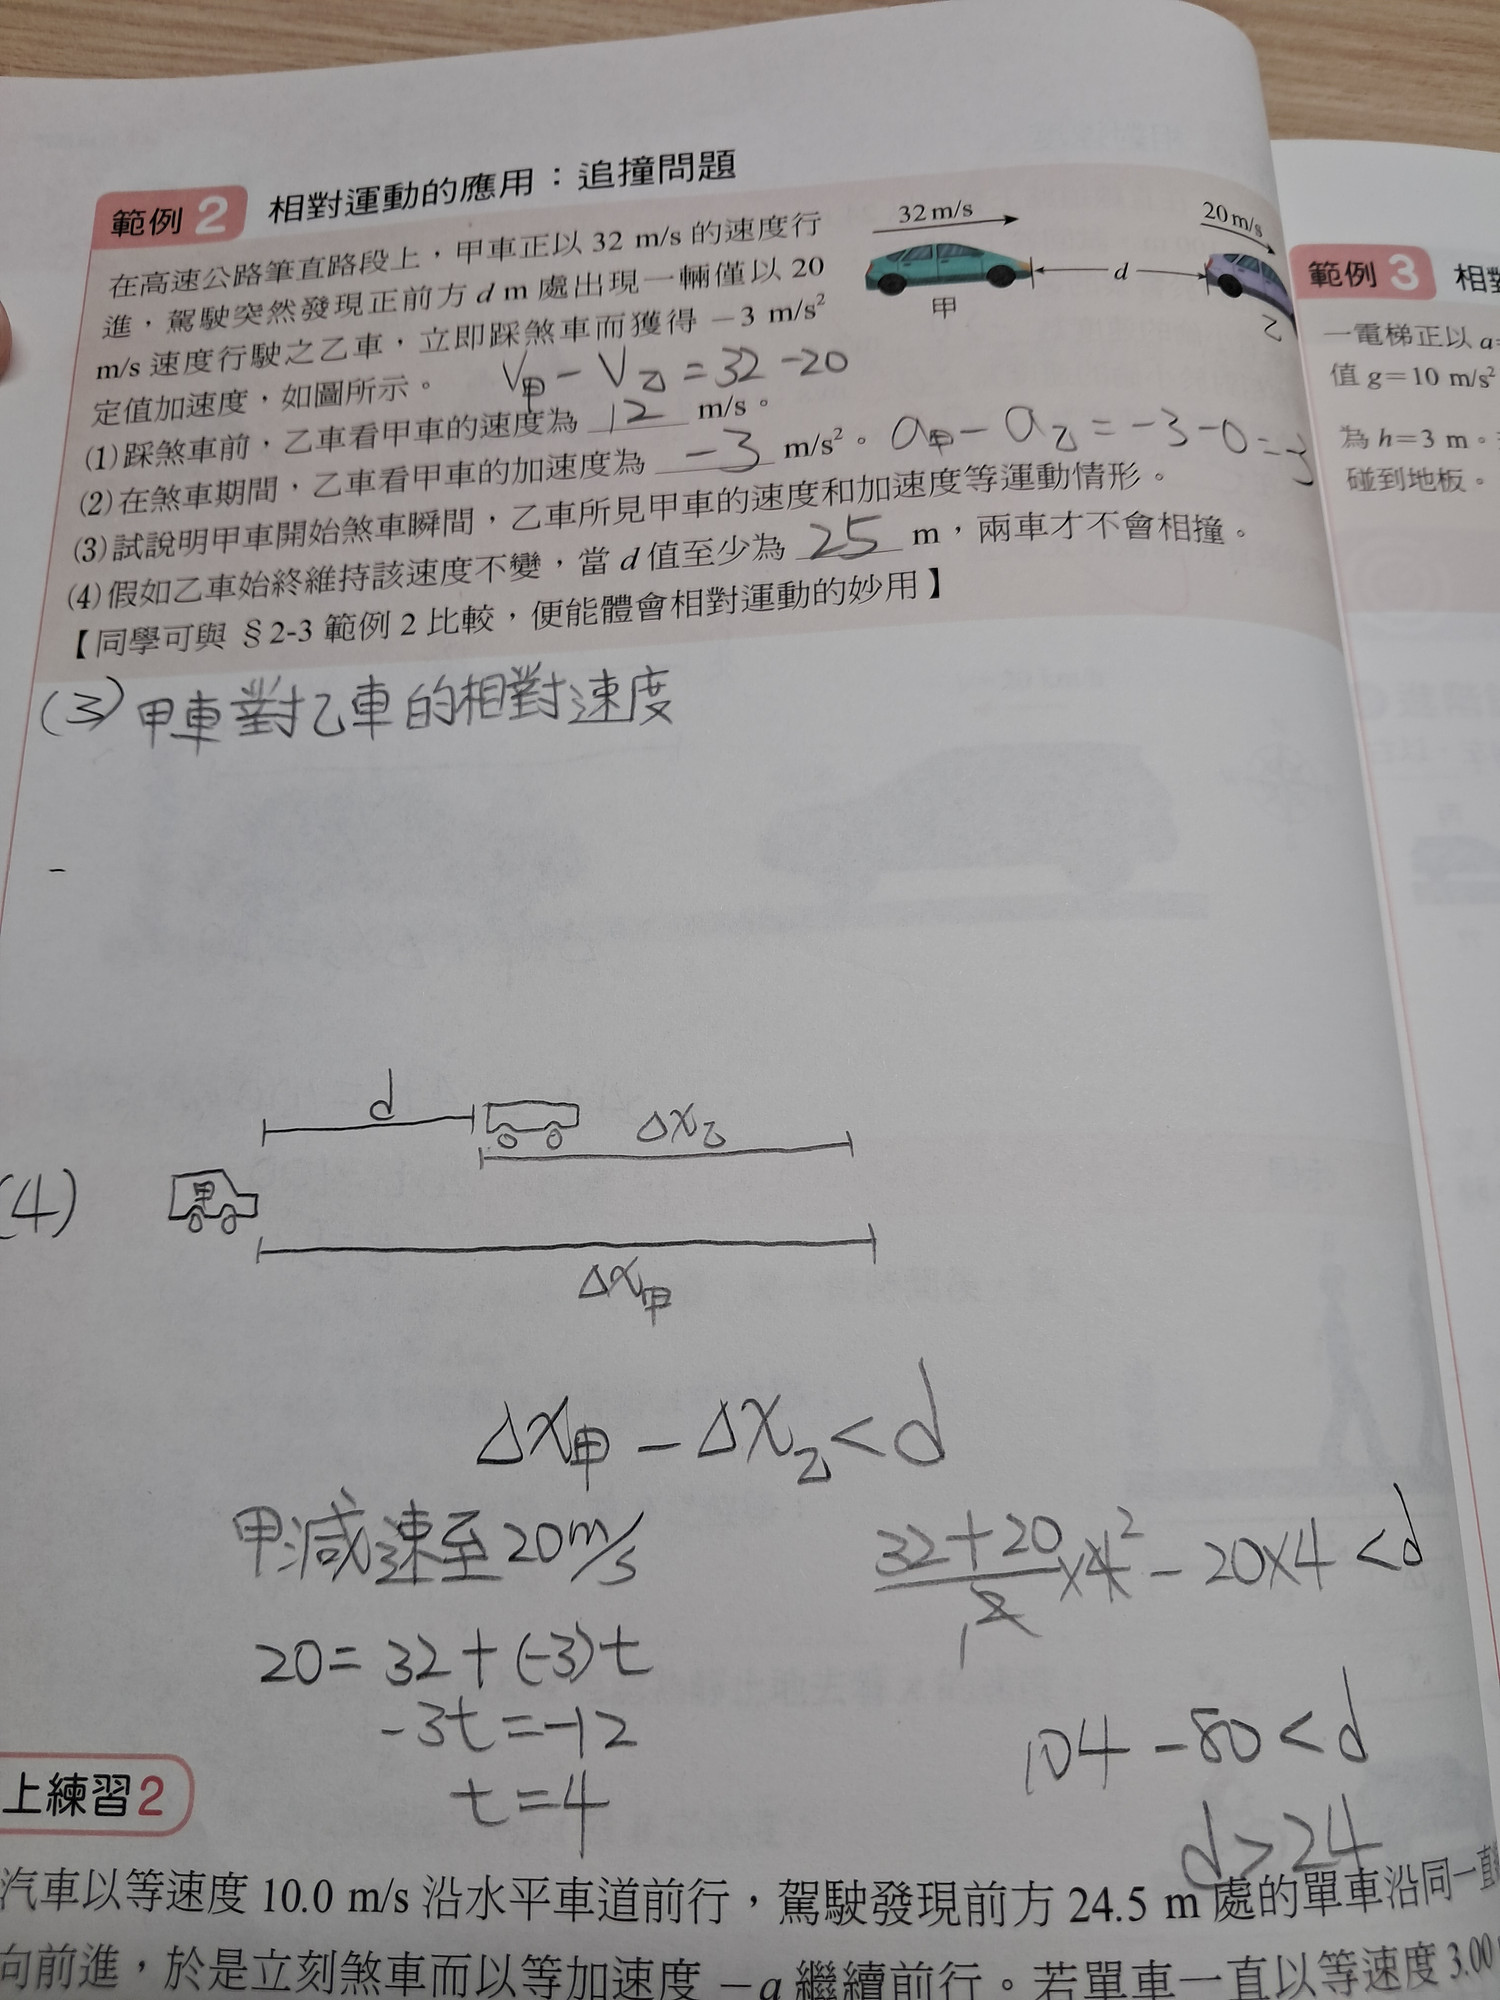 範例 2 相對運動的應用：追撞問題
在高速公路筆直路段上，甲車正以 32 m/s 的速度行
進，駕駛突然發現正前方 d m 處出現一輛僅以 20
m/s 速度行駛之乙車，立即踩煞車而獲得 －3 m/s²
定值加速度，如圖所示。
32 m/s
20 m/s
d
甲
乙
V甲 - V乙 = 32 - 20
(1)踩煞車前，乙車看甲車的速度為 12 m/s。
(2)在煞車期間，乙車看甲車的加速度為 -3 m/s²。
a甲 - a乙 = -3 - 0 = -3
(3)試說明甲車開始煞車瞬間，乙車所見甲車的速度和加速度等運動情形。
(4)假如乙車始終維持該速度不變，當 d 值至少為 25 m，兩車才不會相撞。
【同學可與 §2-3 範例 2 比較，便能體會相對運動的妙用】
(3) 甲車對乙車的相對速度
(4)
d
Δx乙
甲
Δx甲
Δx甲 - Δx乙 < d
甲減速至20m/s
20 = 32 + (-3)t
-3t = -12
t = 4
32+20/2 1 × 4 2 - 20×4 < d
104 - 80 < d
d > 24
上練習2
汽車以等速度 10.0 m/s 沿水平車道前行，駕駛發現前方 24.5 m 處的單車沿同一直
向前進，於是立刻煞車而以等加速度 －a 繼續前行。若單車一直以等速度 3.00
範例 3 相
一電梯正以 a=
值 g=10 m/s²
為 h=3 m。
碰到地板。